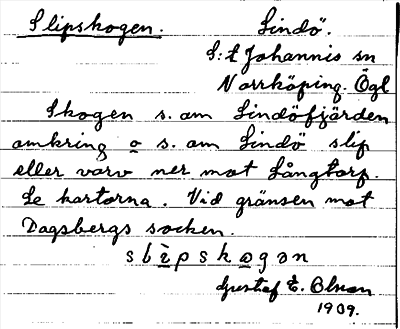 Slipskogen. Lindö.
S:t Johannis sn
Norrköping. Ögl
Skogen s. om Lindöfjärden
omkring o s. om Lindö slip
eller varv ner mot Långtorp.
Se kartorna. Vid gränsen mot
Dagsbergs socken.
Gustaf E. Olson
1909.